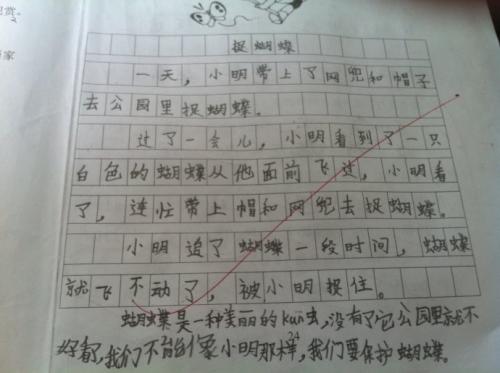 捉蝴蝶
一天，小明带上了网兜和帽子
去公园里捉蝴蝶。
过了一会儿，小明看到了一只
白色的蝴蝶从他面前飞过，小明看
了，连忙带上帽和网兜去捉蝴蝶。
小明追了蝴蝶一段时间，蝴蝶
就飞不动了，被小明捉住。
蝴蝶是一种美丽的kūn虫，没有了它公园里就不
好看了，我们不能像小明那样，我们要保护蝴蝶。
24